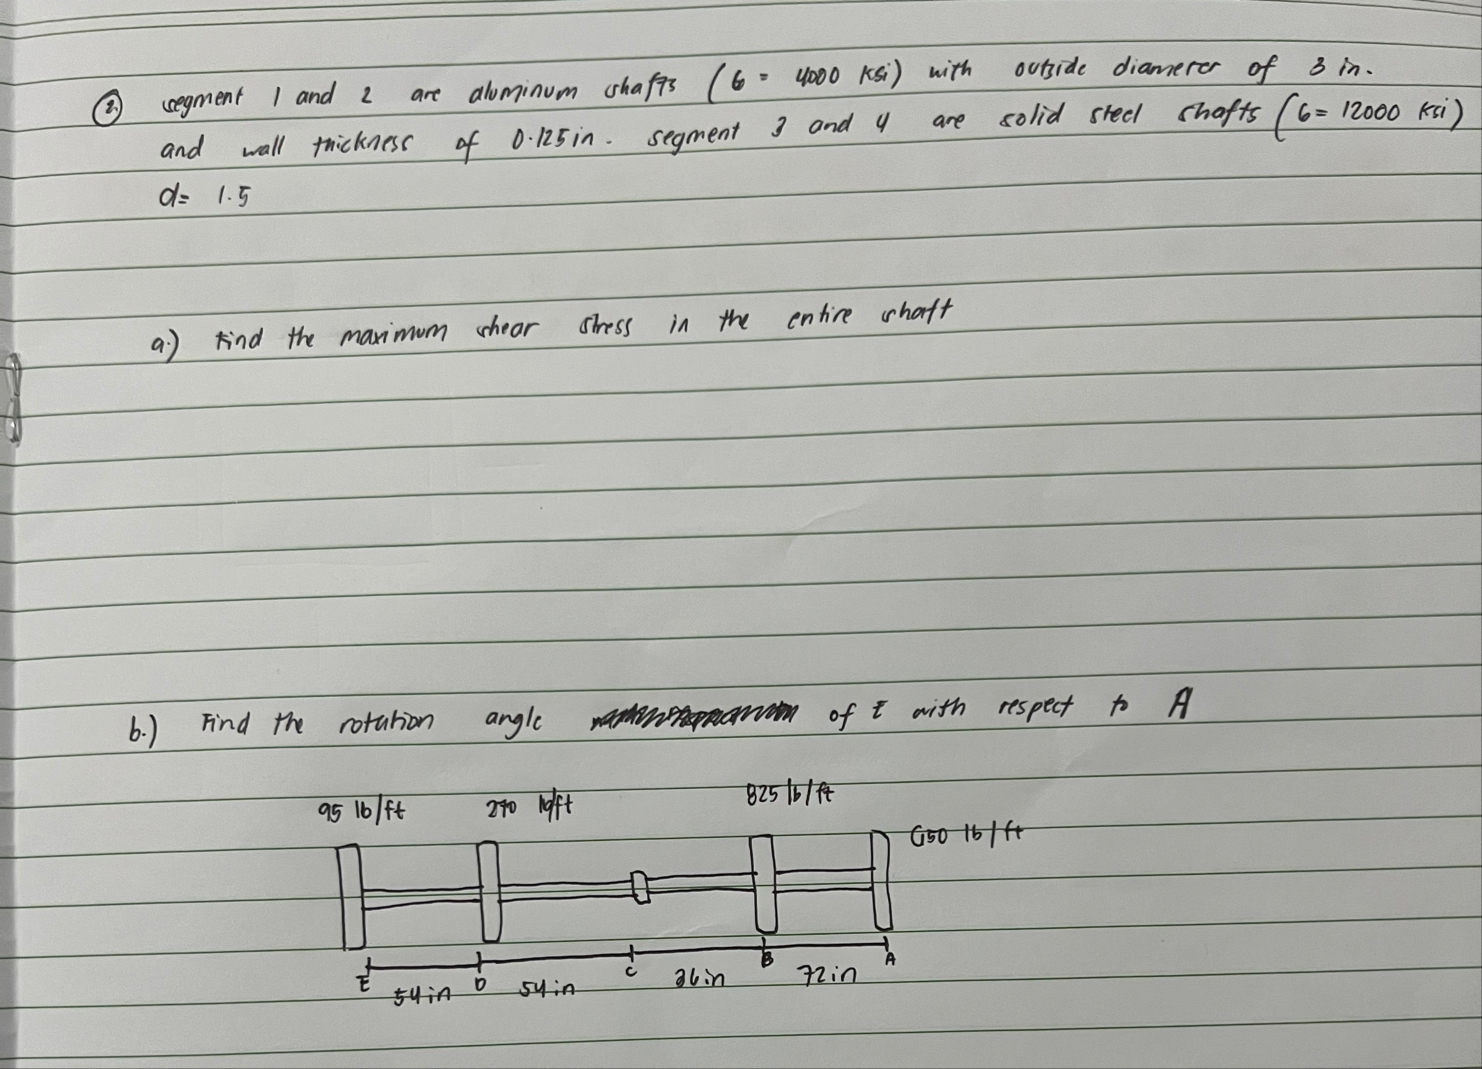 2. segment 1 and 2 are aluminum shafts (G = 4000 ksi) with outside diameter of 3 in.
and wall thickness of 0.125 in. segment 3 and 4 are solid steel shafts (G = 12000 ksi)
d = 1.5
a.) Find the maximum shear stress in the entire shaft
b.) Find the rotation angle of E with respect to A
95 lb/ft 270 lb/ft 825 lb/ft
650 lb/ft
E 54 in D 54 in C 36 in B 72 in A